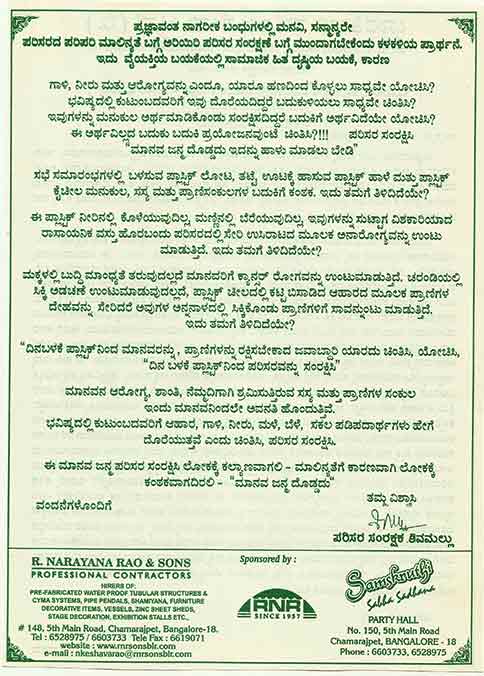 ಪ್ರಜ್ಞಾವಂತ ನಾಗರೀಕ ಬಂಧುಗಳಲ್ಲಿ ಮನವಿ, ಸನ್ಮಾನ್ಯರೇ
ಪರಿಸರದ ಪರಿಪರಿ ಮಾಲಿನ್ಯತೆ ಬಗ್ಗೆ ಅರಿಯಿರಿ ಪರಿಸರ ಸಂರಕ್ಷಣೆ ಬಗ್ಗೆ ಮುಂದಾಗಬೇಕೆಂದು ಕಳಕಳಿಯ ಪ್ರಾರ್ಥನೆ.
ಇದು ವೈಯಕ್ತಿಯ ಬಯಕೆಯಲ್ಲಿ ಸಾಮಾಜಿಕ ಹಿತ ದೃಷ್ಠಿಯ ಬಯಕೆ, ಕಾರಣ
ಗಾಳಿ, ನೀರು ಮತ್ತು ಆರೋಗ್ಯವನ್ನು ಎಂದೂ, ಯಾರೂ ಹಣದಿಂದ ಕೊಳ್ಳಲು ಸಾಧ್ಯವೇ ಯೋಚಿಸಿ?
ಭವಿಷ್ಯದಲ್ಲಿ ಕುಟುಂಬದವರಿಗೆ ಇವು ದೊರೆಯದಿದ್ದರೆ ಬದುಕುಳಿಯಲು ಸಾಧ್ಯವೇ ಚಿಂತಿಸಿ?
ಇವುಗಳನ್ನು ಮನುಕುಲ ಅರ್ಥಮಾಡಿಕೊಂಡು ಸಂರಕ್ಷಿಸದಿದ್ದರೆ ಬದುಕಿಗೆ ಅರ್ಥವಿದೆಯೇ ಯೋಚಿಸಿ?
ಈ ಅರ್ಥವಿಲ್ಲದ ಬದುಕು ಬದುಕಿ ಪ್ರಯೋಜನವುಂಟೆ ಚಿಂತಿಸಿ?!!! ಪರಿಸರ ಸಂರಕ್ಷಿಸಿ
"ಮಾನವ ಜನ್ಮ ದೊಡ್ಡದು ಇದನ್ನು ಹಾಳು ಮಾಡಲು ಬೇಡಿ"
ಸಭೆ ಸಮಾರಂಭಗಳಲ್ಲಿ ಬಳಸುವ ಪ್ಲಾಸ್ಟಿಕ್ ಲೋಟ, ತಟ್ಟೆ ಊಟಕ್ಕೆ ಹಾಸುವ ಪ್ಲಾಸ್ಟಿಕ್ ಹಾಳೆ ಮತ್ತು ಪ್ಲಾಸ್ಟಿಕ್
ಕೈಚೀಲ ಮನುಕುಲ, ಸಸ್ಯ ಮತ್ತು ಪ್ರಾಣಿಸಂಕುಲಗಳ ಬದುಕಿಗೆ ಕಂಠಕ. ಇದು ತಮಗೆ ತಿಳಿದಿದೆಯೇ?
ಈ ಪ್ಲಾಸ್ಟಿಕ್ ನೀರಿನಲ್ಲಿ ಕೊಳೆಯುವುದಿಲ್ಲ, ಮಣ್ಣಿನಲ್ಲಿ ಬೆರೆಯುವುದಿಲ್ಲ, ಇವುಗಳನ್ನು ಸುಟ್ಟಾಗ ವಿಶಕಾರಿಯಾದ
ರಾಸಾಯನಿಕ ವಸ್ತು ಹೊರಬಂದು ಪರಿಸರದಲ್ಲಿ ಸೇರಿ ಉಸಿರಾಟದ ಮೂಲಕ ಅನಾರೋಗ್ಯವನ್ನು ಉಂಟು
ಮಾಡುತ್ತಿದೆ. ಇದು ತಮಗೆ ತಿಳಿದಿದೆಯೇ?
ಮಕ್ಕಳಲ್ಲಿ ಬುದ್ಧಿ ಮಾಂಧ್ಯತೆ ತರುವುದಲ್ಲದೆ ಮಾನವರಿಗೆ ಕ್ಯಾನ್ಸರ್ ರೋಗವನ್ನು ಉಂಟುಮಾಡುತ್ತಿದೆ. ಚರಂಡಿಯಲ್ಲಿ
ಸಿಕ್ಕಿ ಅಡಚಣೆ ಉಂಟುಮಾಡುವುದಲ್ಲದೆ, ಪ್ಲಾಸ್ಟಿಕ್ ಚೀಲದಲ್ಲಿ ಕಟ್ಟಿ ಬಿಸಾಡಿದ ಆಹಾರದ ಮೂಲಕ ಪ್ರಾಣಿಗಳ
ದೇಹವನ್ನು ಸೇರಿದರೆ ಅವುಗಳ ಅನ್ನನಾಳದಲ್ಲಿ ಸಿಕ್ಕಿಕೊಂಡು ಪ್ರಾಣಿಗಳಿಗೆ ಸಾವನ್ನುಂಟು ಮಾಡುತ್ತಿದೆ.
ಇದು ತಮಗೆ ತಿಳಿದಿದೆಯೇ?
"ದಿನಬಳಕೆ ಪ್ಲಾಸ್ಟಿಕ್‌ನಿಂದ ಮಾನವರನ್ನು, ಪ್ರಾಣಿಗಳನ್ನು ರಕ್ಷಿಸಬೇಕಾದ ಜವಾಬ್ದಾರಿ ಯಾರದು ಚಿಂತಿಸಿ, ಯೋಚಿಸಿ,
"ದಿನ ಬಳಕೆ ಪ್ಲಾಸ್ಟಿಕ್‌ನಿಂದ ಪರಿಸರವನ್ನು ಸಂರಕ್ಷಿಸಿ"
ಮಾನವನ ಆರೋಗ್ಯ, ಶಾಂತಿ, ನೆಮ್ಮದಿಗಾಗಿ ಶ್ರಮಿಸುತ್ತಿರುವ ಸಸ್ಯ ಮತ್ತು ಪ್ರಾಣಿಗಳ ಸಂಕುಲ
ಇಂದು ಮಾನವನಿಂದಲೇ ಅವನತಿ ಹೊಂದುತ್ತಿವೆ.
ಭವಿಷ್ಯದಲ್ಲಿ ಕುಟುಂಬದವರಿಗೆ ಆಹಾರ, ಗಾಳಿ, ನೀರು, ಮಳೆ, ಬೆಳೆ, ಸಕಲ ಪಡಿಪದಾರ್ಥಗಳು ಹೇಗೆ
ದೊರೆಯುತ್ತವೆ ಎಂದು ಚಿಂತಿಸಿ, ಪರಿಸರ ಸಂರಕ್ಷಿಸಿ.
ಈ ಮಾನವ ಜನ್ಮ ಪರಿಸರ ಸಂರಕ್ಷಿಸಿ ಲೋಕಕ್ಕೆ ಕಲ್ಯಾಣವಾಗಲಿ - ಮಾಲಿನ್ಯತೆಗೆ ಕಾರಣವಾಗಿ ಲೋಕಕ್ಕೆ
ಕಂಠಕವಾಗದಿರಲಿ - "ಮಾನವ ಜನ್ಮ ದೊಡ್ಡದು"
ವಂದನೆಗಳೊಂದಿಗೆ
ತಮ್ಮ ವಿಶ್ವಾಸಿ
ಪರಿಸರ ಸಂರಕ್ಷಕ ಶಿವಮಲ್ಲು
R. NARAYANA RAO & SONS
PROFESSIONAL CONTRACTORS
HIRERS OF:
PRE-FABRICATED WATER PROOF TUBULAR STRUCTURES &
CYMA SYSTEMS, PIPE PENDALS, SHAMIYANA, FURNITURE
DECORATIVE ITEMS, VESSELS, ZINC SHEET SHEDS,
STAGE DECORATION, EXHIBITION STALLS ETC.,
# 148, 5th Main Road, Chamarajpet, Bangalore-18.
Tel : 6528975 / 6603733 Tele Fax : 6619071
website : www.rnrsonsblr.com
e-mail : nkeshavarao@rnrsonsblr.com
Sponsored by :
RNR
SINCE 1957
Samskruthi
Sabha Sadhana
PARTY HALL
No. 150, 5th Main Road
Chamarajpet, BANGALORE - 18
Phone : 6603733, 6528975